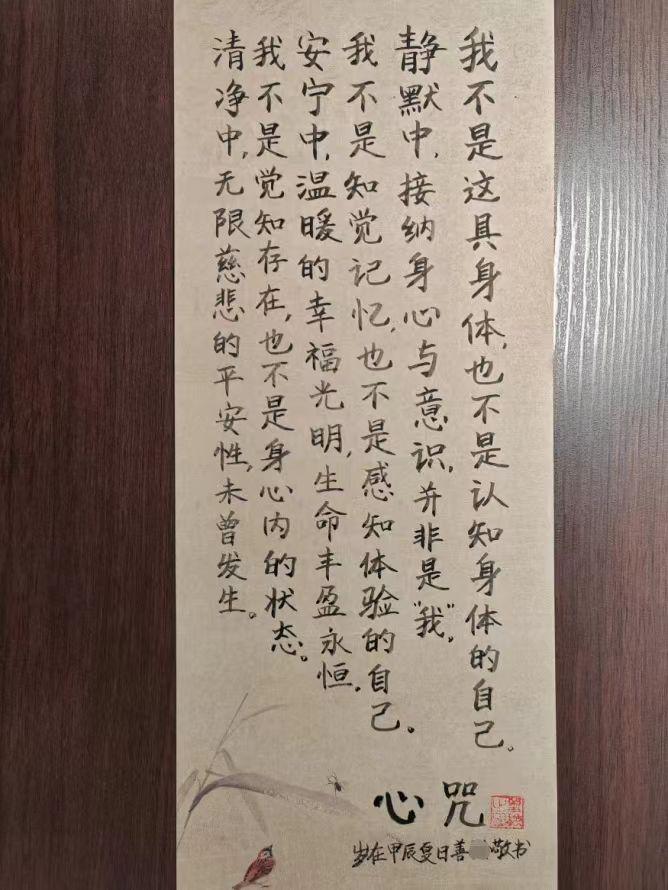 我不是这具身体,也不是认知身体的自己。
静默中,接纳身心与意识,并非是"我"。
我不是知觉记忆,也不是感知体验的自己。
安宁中,温暖的幸福光明,生命丰盈永恒。
我不是觉知存在,也不是身心内的状态。
清净中,无限慈悲的平安性,未曾发生。
心咒
岁在甲辰夏日善敬书